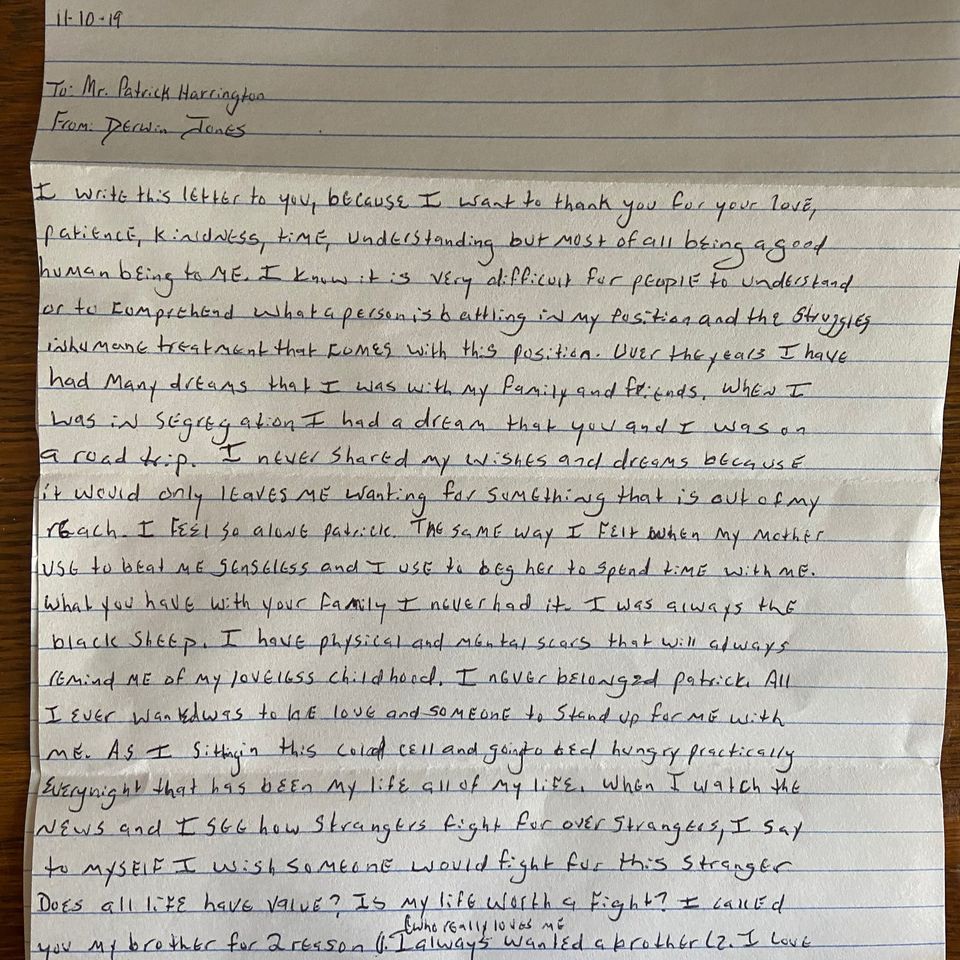 11-10-19
To: Mr. Patrick Harrington
From: Derwin Jones
I write this letter to you, because I want to thank you for your love,
patience, kindness, time, understanding but most of all being a good
human being to me. I know it is very difficult for people to understand
or to comprehend what a person is battling in my position and the struggles
inhumane treatment that comes with this position. Over the years I have
had many dreams that I was with my family and friends. When I
was in segregation I had a dream that you and I was on
a road trip. I never shared my wishes and dreams because
it would only leaves me wanting for something that is out of my
reach. I feel so alone Patrick. The same way I felt when my mother
use to beat me senseless and I use to beg her to spend time with me.
What you have with your family I never had it. I was always the
black sheep. I have physical and mental scars that will always
remind me of my loveless childhood. I never belonged Patrick. All
I ever wanted was to be love and someone to stand up for me with
me. As I sitting in this cold cell and going to bed hungry practically
everynight that has been my life all of my life. When I watch the
news and I see how strangers fight for over strangers, I say
to myself I wish someone would fight for this stranger
Does all life have value? Is my life worth a fight? I called
(who really loves me
you my brother for 2 reason (1. I always wanted a brother (2. I love